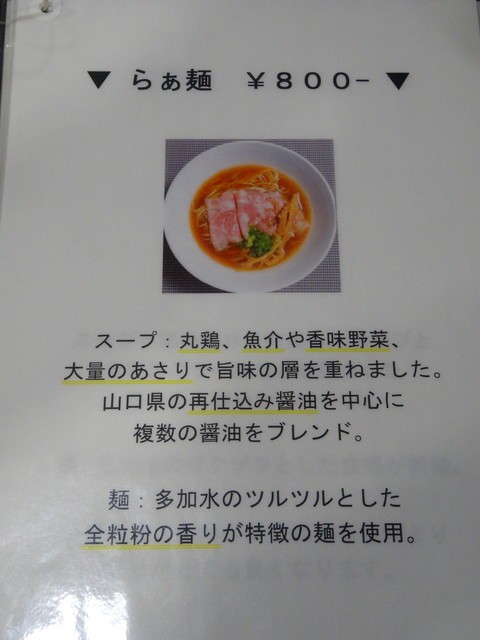 ▼ らぁ麺　￥８００− ▼
スープ：丸鶏、魚介や香味野菜、
大量のあさりで旨味の層を重ねました。
山口県の再仕込み醤油を中心に
複数の醤油をブレンド。
麺：多加水のツルツルとした
全粒粉の香りが特徴の麺を使用。